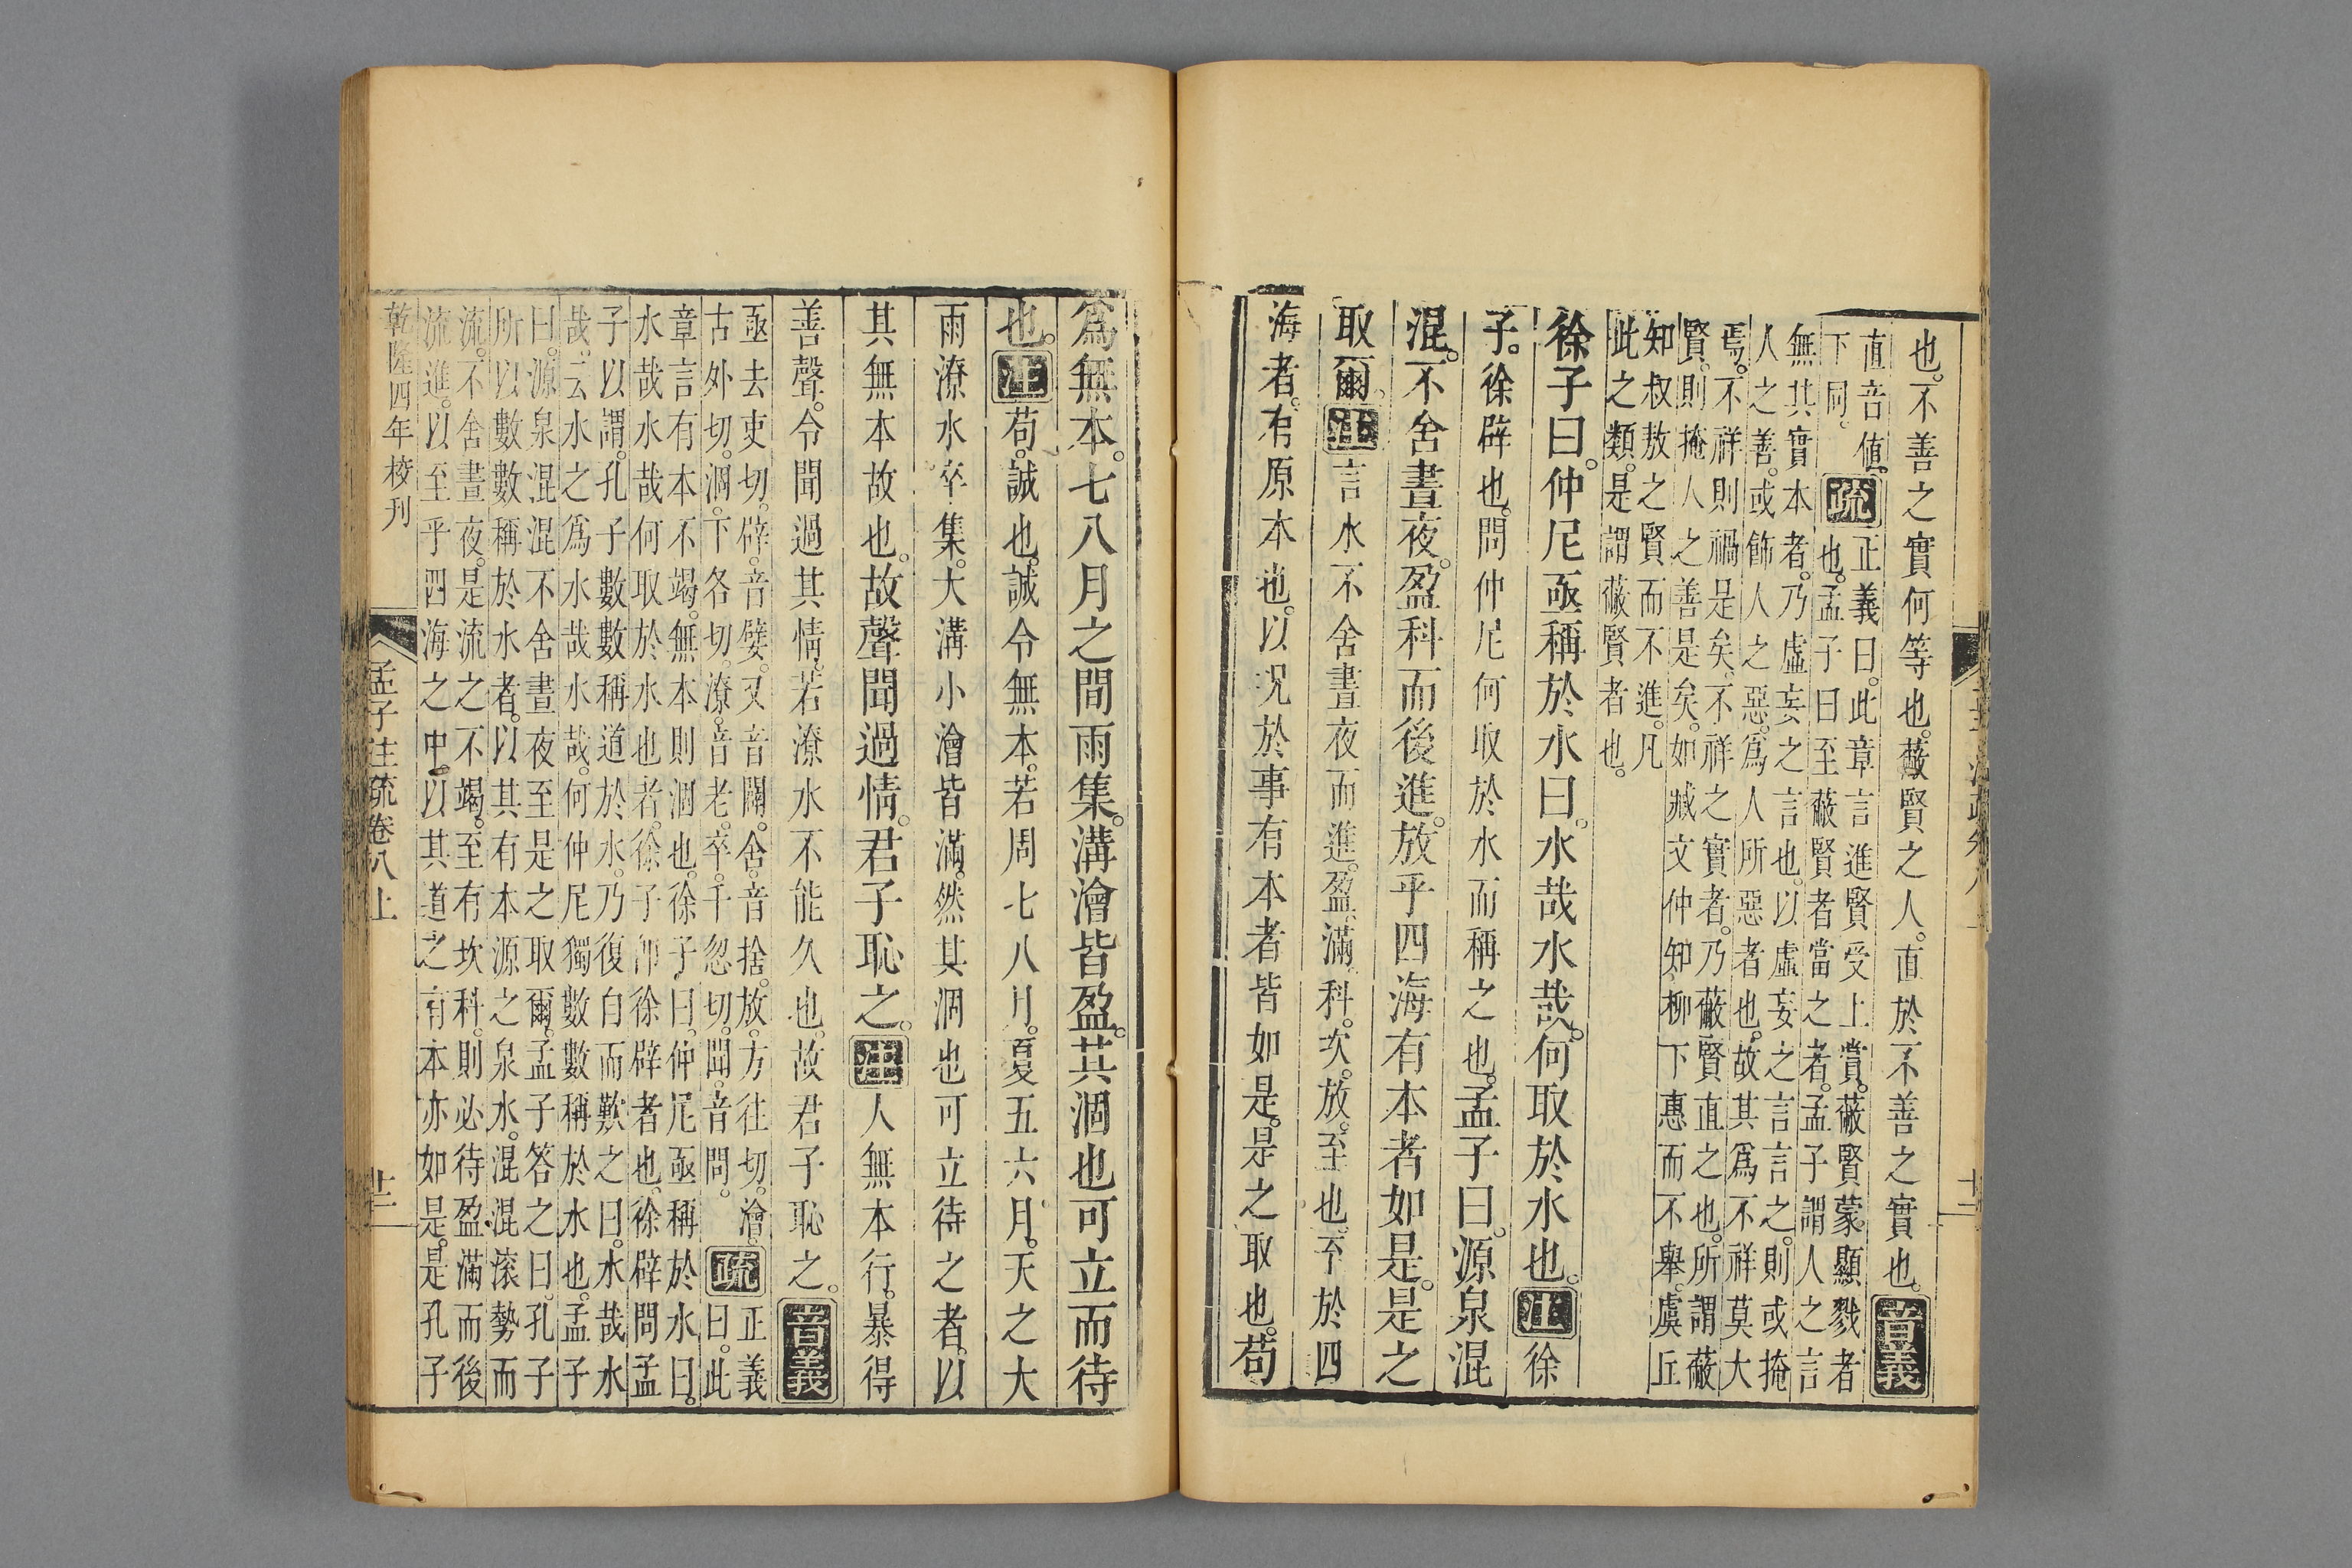 也。不善之實何等也。蔽賢之人。直於不善之實也。音義
直音値。
下同。
疏
正義曰。此章言進賢受上賞。蔽賢蒙顯戮者
也。孟子曰至蔽賢者當之者。孟子謂人之言
無其實本者。乃虛妄之言也。以虛妄之言言之。則或掩
人之善。或飾人之惡。爲人所惡者也。故其爲不祥莫大
焉。不祥則禍是矣。不祥之實者。乃蔽賢直之也。所謂蔽
賢。則掩人之善是矣。如臧文仲知柳下惠而不舉。虞丘
知叔敖之賢而不進。凡
此之類。是謂蔽賢者也。
徐子曰。仲尼亟稱於水曰。水哉水哉。何取於水也。注徐
子。徐辟也。問仲尼何取於水而稱之也。孟子曰。源泉混
混。不舍晝夜。盈科而後進。放乎四海有本者如是。是之
取爾。注言水不舍晝夜而進。盈。滿。科。坎。放。至也。至於四
海者。有原本也。以況於事有本者皆如是。是之取也。苟
爲無本。七八月之間雨集。溝澮皆盈。其涸也可立而待
也。注苟。誠也。誠令無本。若周七八月。夏五六月。天之大
雨潦水卒集。大溝小澮皆滿。然其涸也可立待之者。以
其無本故也。故聲聞過情。君子恥之。注人無本行。暴得
善聲。令聞過其情。若潦水不能久也。故君子恥之。音義
亟去吏切。辟。音嬖。又音闢。舍。音捨。放。方往切。澮。
古外切。涸。下各切。潦。音老。卒。千忽切。聞。音問。
疏
正義
曰。此
章言有本不竭。無本則涸也。徐子曰。仲尼亟稱於水曰。
水哉水哉何取於水也者。徐子卽徐辟者也。徐辟問孟
子以謂。孔子數數稱道於水。乃復白而歎之曰。水哉水
哉。云水之爲水哉水哉。何仲尼獨數數稱於水也。孟子
曰。源泉混混不舍晝夜至是之取爾。孟子答之曰。孔子
所以數數稱於水者。以其有本源之泉水。混混滾勢而
流。不舍晝夜。是流之不竭。至有坎科。則必待盈滿而後
流進。以至乎四海之中。以其道之有本亦如是。是孔子
乾隆四年校刊
孟子注疏卷八上